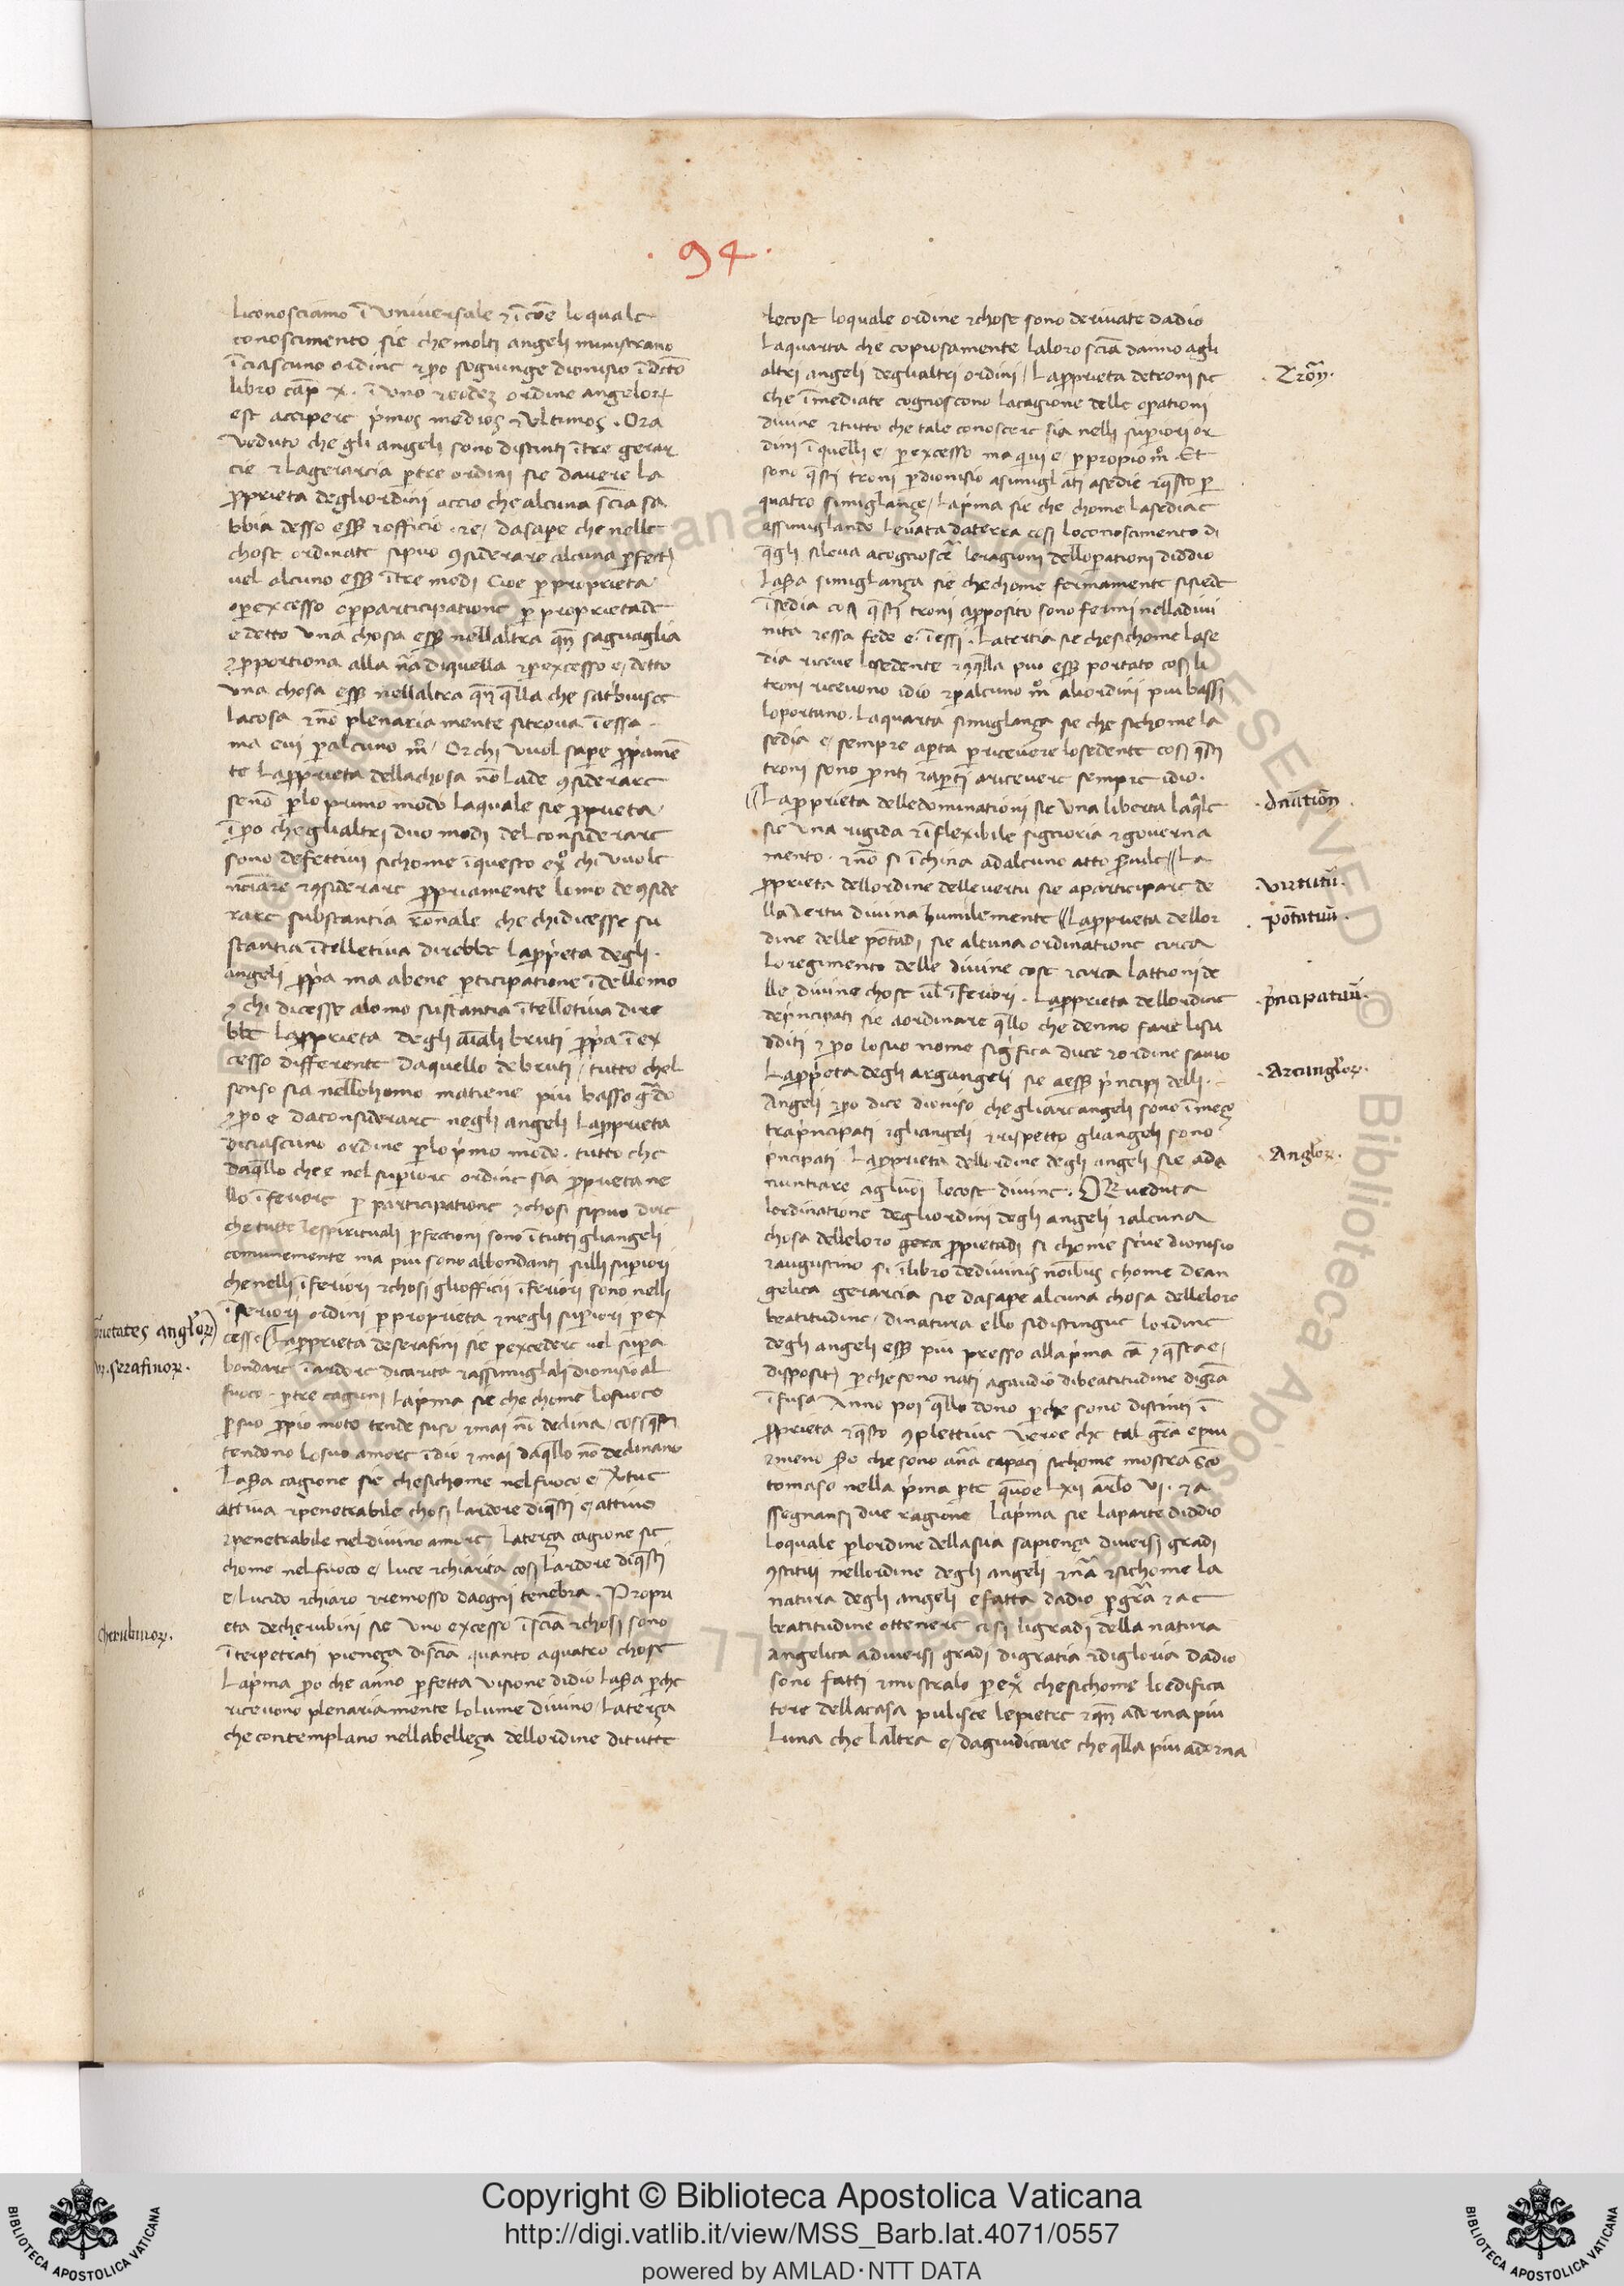 . 94 .
liconosciamo ī vniuersale ⁊ ī cōe loquale
conoscimento sie che molti angeli ministrano
ī ciascuno ordine ⁊ ꝑo sogiunge dionisio ī dcto
libro cap̄ x. ī vno ⁊ eodeȝ ordine angeloꝝ
est accipere p̄mos medios ⁊ vltimos . Ora
veduto che gli angeli sono distinti ī tre gerar
cie ⁊ la gerarcia ꝑ tre ordini sie davere la
ꝓprieta degliordini accio che alcuna sc̄ia sa
bbia desso ess̄ ⁊ officio dasape che nelle
chose ordinate sipuo ꝯsiderare alcuna ꝑfect
uel alcuno ess̄ ī tre modi cioe ꝑ proprieta
o ꝑ excesso o ꝑ participatione ꝑ proprietade
e detto vna chosa ess̄ nellaltra qn̄ saguaglia
⁊ ꝓportiona alla nā diquella ⁊ ꝑ excesso e/ detto
vna chosa ess̄ nellaltra qn̄ q̄lla che satbuisce
lacosa ⁊ nō plenaria mente sitroua ī essa
ma eui ꝑ alcuno mō/ Or chi vuol sape ꝓp̄amē
te laꝓprieta dellachosa nō lade ꝯsiderare
senō ꝑ lo primo modo laquale sie ꝓprieta/
ī ꝑo che eglialtri duo modi del considerare
sono defettiui sichome ī questo exo chi vuole
nciare ⁊ ꝯsiderare ꝓpriamente lomo de ꝯside
rare substantia rōnale che chi dicesse su
stantia ītelletiua direbbe laꝓp̄eta degli .
angeli ꝓp̄a ma abene ꝑticipatione ī dellomo
⁊ chi dicesse alomo sustantia ītelletiua dire
bbe laꝓprieta degli aīali bruti ꝓp̄a ī ex
cesso differente daquello debruti / tutto chel
senso sia nellohomo matiene piu basso g̃do
⁊ ꝑo e daconsiderare negli angeli laꝓprieta
diciascuno ordine ꝑ lo p̄mo modo . tutto che
daq̄llo che e nel supiore ordine sia ꝓprieta ne
llo ī feriore ꝑ participatione ⁊ chosi sipuo dire
che tutte lespirituali ꝑfectioni sono ī tutti gliangeli
comunemente ma piu sono abbondanti sulli supiori
che nelli ī feriori ⁊ chosi gliofficii ī feriori sono nelli
ī feriori ordini ꝑ proprieta ⁊ negli supiori ꝑ ex
cesso ( Laꝓprieta deserafini sie ꝑ excedere uel supa
bondare ī ardore dicarita ⁊ assimiglali dionisio al
fuoco . ꝑ tre cagioni Lap̄ma sie che chome lofuoco
ꝑ suo ꝓpio moto tende suso ⁊ mai nō declina / cosi q̄sti
tendono losuo amore ī dio ⁊ mai daq̄llo nō declinano
La 2a cagione sie che sichome nel fuoco e v̄tue
attiua ⁊ penetrabile chosi lardore diq̄sti e/ attiuo
⁊ penetrabile nel diuino amore laterça cagione sie
chome nel fuoco e/ luce ⁊ chiarita cosi lardore diq̄sti
e/ lucido ⁊ chiaro ⁊ remosso daogni tenebra . Propri
eta decherubini sie vno excesso ī sc̄ia ⁊ chosi sono
ī terpetrati pieneça disc̄ia quanto aquatro chose
Lap̄ma ꝑo che anno ꝑfetta visione didio La 2a ꝑche
riceuono plenariamente lo lume diuino / laterça
che contemplano nellabelleça dellordine ditutte
ꝓrietates angloꝝ
serafinoꝝ.
cherubinoꝝ.
lecose loquale ordine ⁊ chose sono deriuate dadio
laquarta che copiosamente laloro sc̄ia danno agli
altri angeli deglialtri ordini / Laꝓprieta detroni sie
che ī mediate cognoscono lacagione delle opationi
diuine ⁊ tutto che tale conoscere sia nelli supiori or
dini ī quelli e/ ꝑ excesso ma qui e/ ꝑ propio mō . Et
sono q̄sti troni ꝑ dionisio asimigliati asedie ⁊ q̄sto ꝑ
quatro simiglançe / Lap̄ma sie che chome lasedia e
assimiglando leuata daterra cosi loconoscimento di
q̄gli sileua acognosce le ragioni dellopationi diddio
La 2a simiglança sie che chome fermamente sisiede
ī sedia cosi q̄sti troni apposito sono fermi nelladiui
nita ⁊ essa sede e ī essi . Latertia sie che sichome lase
dia riceue losedente ⁊ q̄lla puo ess̄ portato cosi li
troni riceuono idio ⁊ ꝑ alcuno mō aliordini piu bassi
loportano . Laquarta simiglança sie che sichome la
sedia e/ sempre apta ꝑ riceuere losedente cosi q̄sti
troni sono p̄nti ⁊ apti ariceuere sempre idio .
(( Laꝓprieta delledominationi sie vna liberta laq̄le
sie vna rigida ⁊ ī flexibile signioria ⁊ gouerna
mento . ⁊ nō si ī china adalcuno atto ꝑuile (( La
ꝓprieta dellordine delleuertu sie aparticipare de
lla vertu diuina humilemente (( Laꝓprieta dellor
dine delle potadi sie alcuna ordinatione circa
loregimento delle diuine cose ⁊ circa lattioni de
lle diuine chose ul ī feriori . Laꝓprieta dellordine
dep̄ncipati sie aordinare q̄llo che denno fare lisu
dditi ⁊ ꝑo losuo nome sigfica duce ⁊ ordine sauio
Laꝓp̄eta degli argangeli sie aess̄ p̄ncipi delli .
Angeli ⁊ ꝑo dice dioniso che gliarcangeli sono ī meço
trap̄ncipati ⁊ gliangeli ⁊ rispetto gliangeli sono
pncipati Laꝓprieta dellordine degli angeli sie ada
nuntiare agluoi lecose diuine . OR veduta
lordinatione degliordini degli angeli ⁊ alcuna
chosa delleloro ꝓpietadi si chome sciue dionisio
⁊ augustino si ī libro dediuinis noibus chome dean
gelica gerarcia sie dasape alcuna chosa delleloro
beatitudine / dinatura ello sidistingue lordine
degli angeli ess̄ piu presso allap̄ma cā ⁊ q̄sta e/
disposit ꝑche sono nati agaudio dibeatitudine digrā
ī fusa Anno poi q̄llo dono ꝑche sono distinti ī
ꝓprieta ⁊ q̄sto ꝯplettiue che tal grā e piu
⁊ meno sco che sono capaci sichome mostra sco
tomaso nella p̄ma ꝑte q̄one lxii arlo vi . ⁊ a
ssegnansi due ragione lap̄ma sie laparte diddio
loquale ꝑ lordine dellasua sapiença diuersi gradi
ꝯstitui nellordine degli angeli ⁊ nā ⁊ sichome la
natura degli angeli e fatta dadio ꝑ grā ⁊ a e
beatitudine ottenere cosi ligradi della natura
angelica adiuersi gradi digratia ⁊ digloria dadio
sono fatti ⁊ mostralo ꝑ exo che sichome loedifica
tore dellacasa pulisce lepietre ⁊ qn̄ adorna piu
luna che laltra e/ dagiudicare che q̄lla piu adorna
. Trōn.
. dn̄ationū .
. virtutū .
. potatum .
. p̄ncipatuū .
. Arcangloꝝ .
. Angloꝝ .
Copyright © Biblioteca Apostolica Vaticana
http://digi.vatlib.it/view/MSS_Barb.lat.4071/0557
powered by AMLAD·NTT DATA
BIBLIOTECA APOSTOLICA VATICANA
BIBLIOTECA APOSTOLICA VATICANA